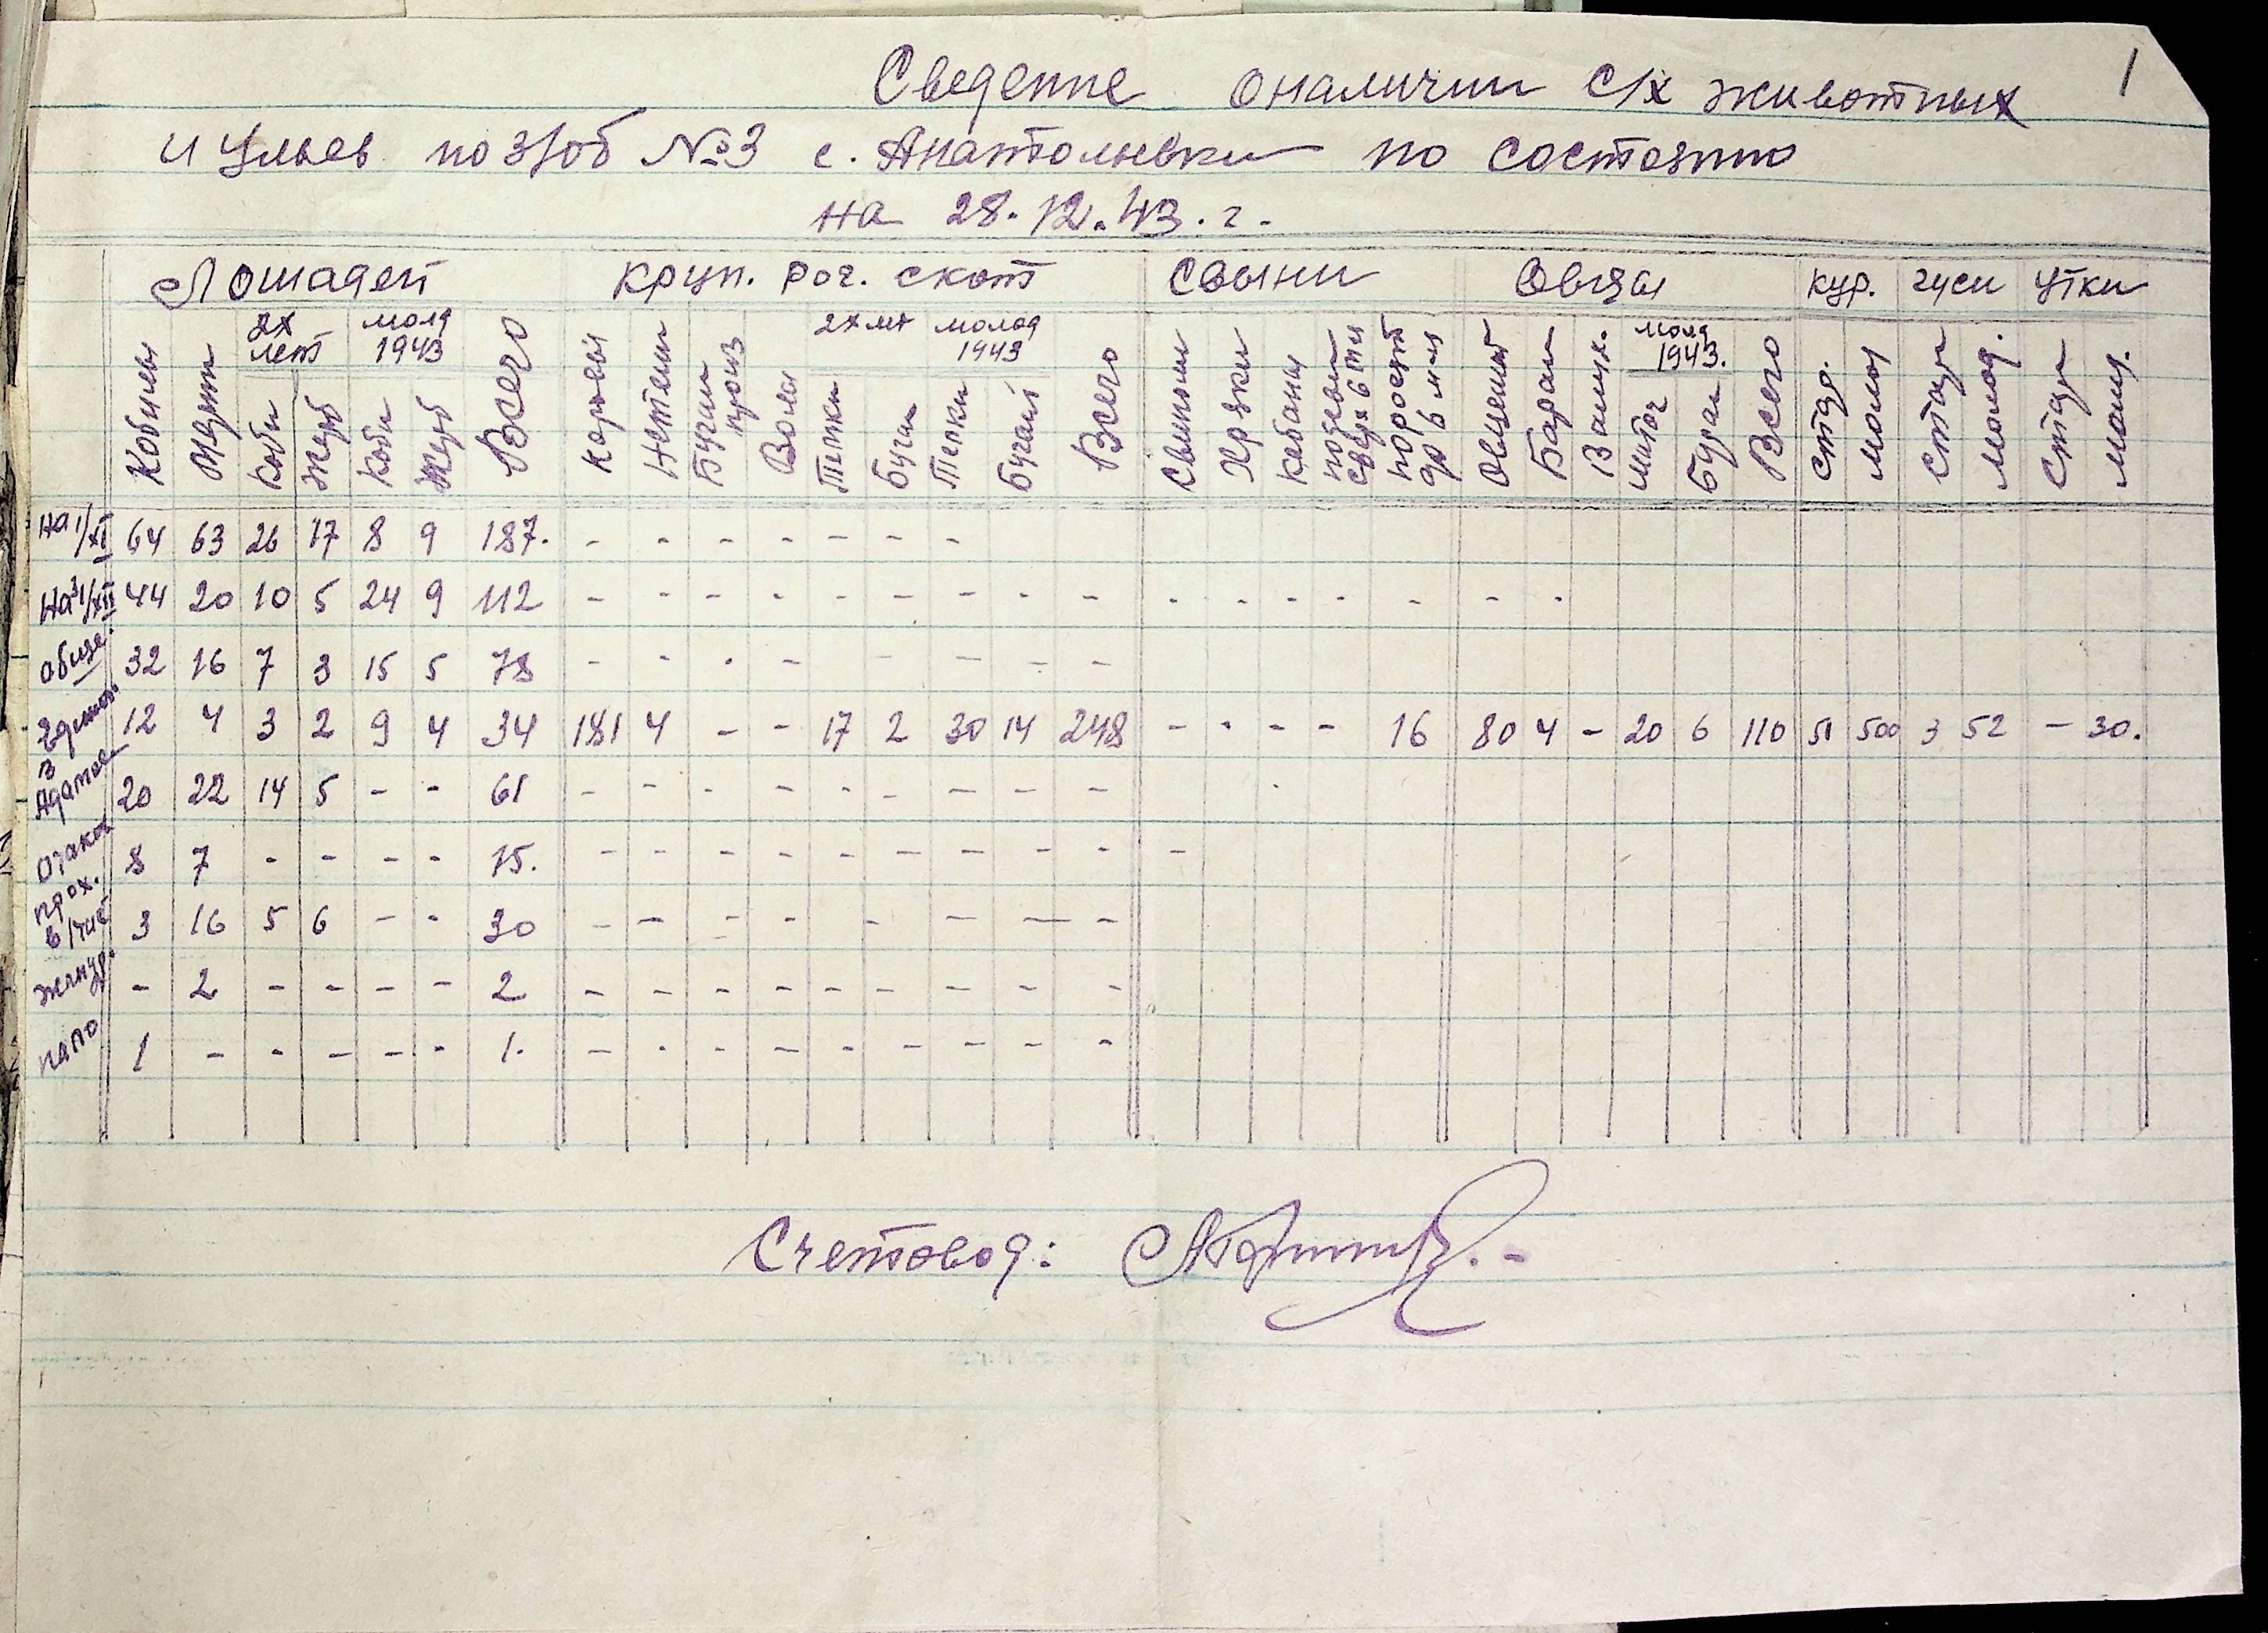 1
Сведение о наличии с/х животных
и ульев по з/об №3 с. Анатольевки по состоянию
на 28.12.43.г.
Лошадей круп. рог. скот Свыни Овцы кур. гуси утки
2х лет молд 1943 2х лет молод 1943 молд 1943.
Кобилы Коби Жереб Коби Жереб Всего Коровы Нетели Бугаи произ Волы Телки Бугаи Телки Бугаи Всего Свиноки Хряки Кабаны поросят до 6 м-ци Барани Валух. Всего стар. молод стари молод. стари молод.
на 1/XI 64 63 26 17 8 9 187. - - - - - - -
на 31/XII 44 20 10 5 24 9 112 - - - - - - - - - - - - - - - -
обще. 32 16 7 3 15 5 78 - - - - - - - -
12 4 3 2 9 4 34 181 4 - - 17 2 30 14 248 - - - - 16 80 4 - 20 6 110 51 500 3 52 - 30.
20 22 14 5 - - 61 - - - - - - - - -
8 7 - - - - 15. - - - - - - - - - -
прох. 3 16 5 6 - - 30 - - - - - - - -
- 2 - - - - 2 - - - - - - - - -
1 - - - - - 1. - - - - - - - - -
Счетовод: